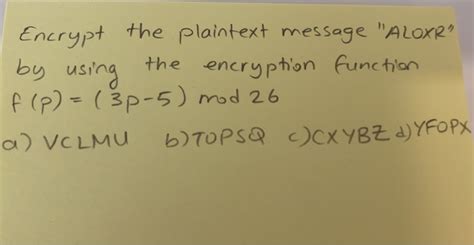 Encrypt the plaintext message "ALOXR"
by using the encryption function
f(p) = (3p-5) mod 26
a) VCLMU b) TOPSQ c) CXYBZ d) YFOPX